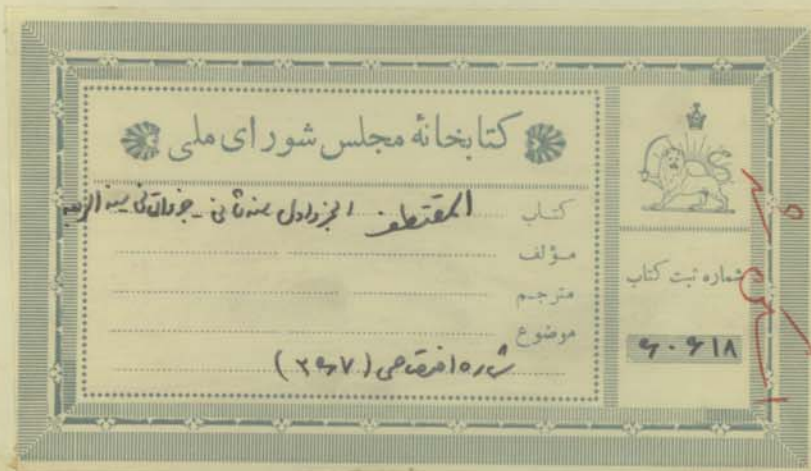 کتابخانهٔ مجلس شورای ملی
کتاب المقتطف الجزء الاول سنه ثانی - جزء الثانی سنه الرابعه
مؤلف
مترجم
موضوع
شماره اختصاصی (۳۶۷)
شماره ثبت کتاب
۶۰۶۱۸